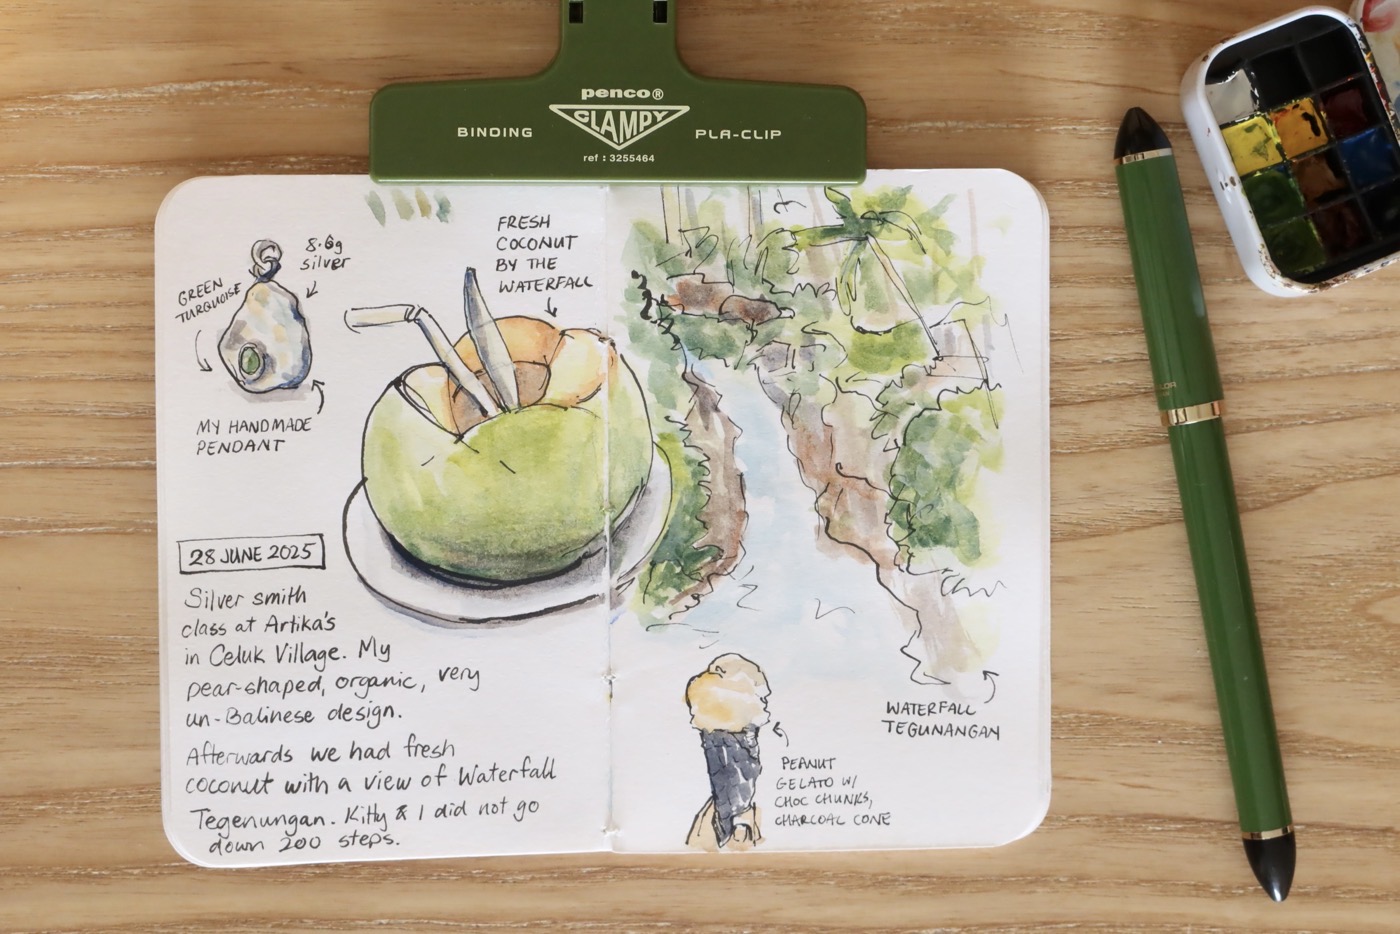 penco®
BINDING CLAMPY PLA-CLIP
ref : 3255464
8.6g
silver
GREEN
TURQUOISE
MY HANDMADE
PENDANT
FRESH
COCONUT
BY THE
WATERFALL
28 JUNE 2025
Silver smith
class at Artika's
in Celuk Village. My
pear-shaped, organic, very
un-Balinese design.
Afterwards we had fresh
coconut with a view of Waterfall
Tegenungan. Kitty & I did not go
down 200 steps.
WATERFALL
TEGUNANGAN
PEANUT
GELATO W/
CHOC CHUNKS,
CHARCOAL CONE